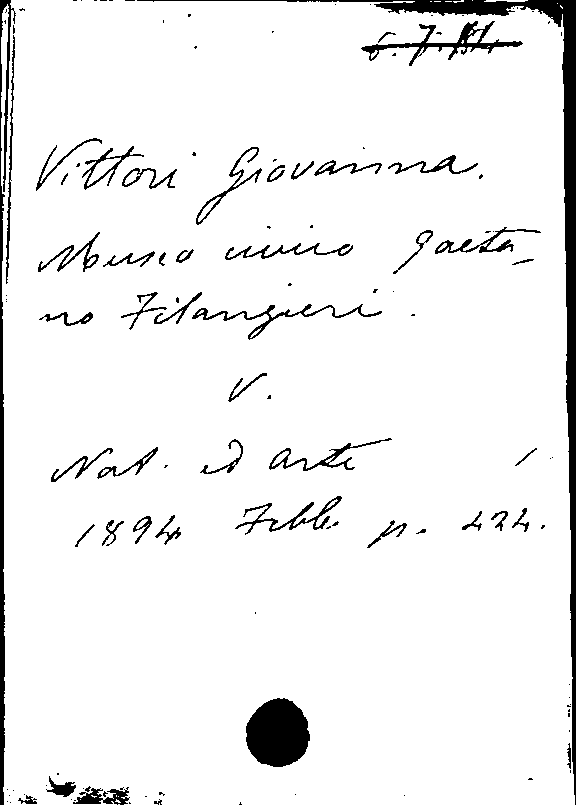 Vittori Giovanna.
Museo civico Gaeta-
no Filangieri.
V.
Nat. ed arte
1894 Febb. p. 424.